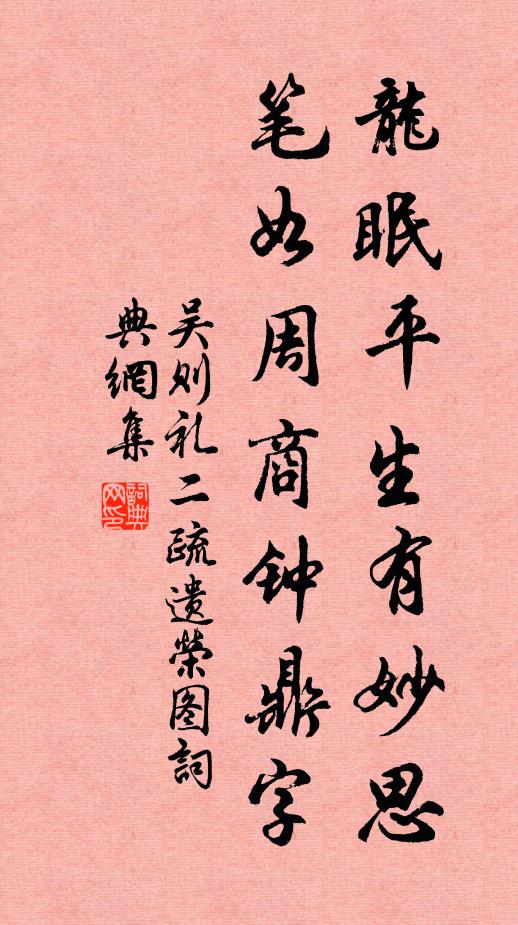 龍眠平生有妙思
笔如周商钟鼎字
吴则礼二疏遗荣图詞
典網集
詞典
网印